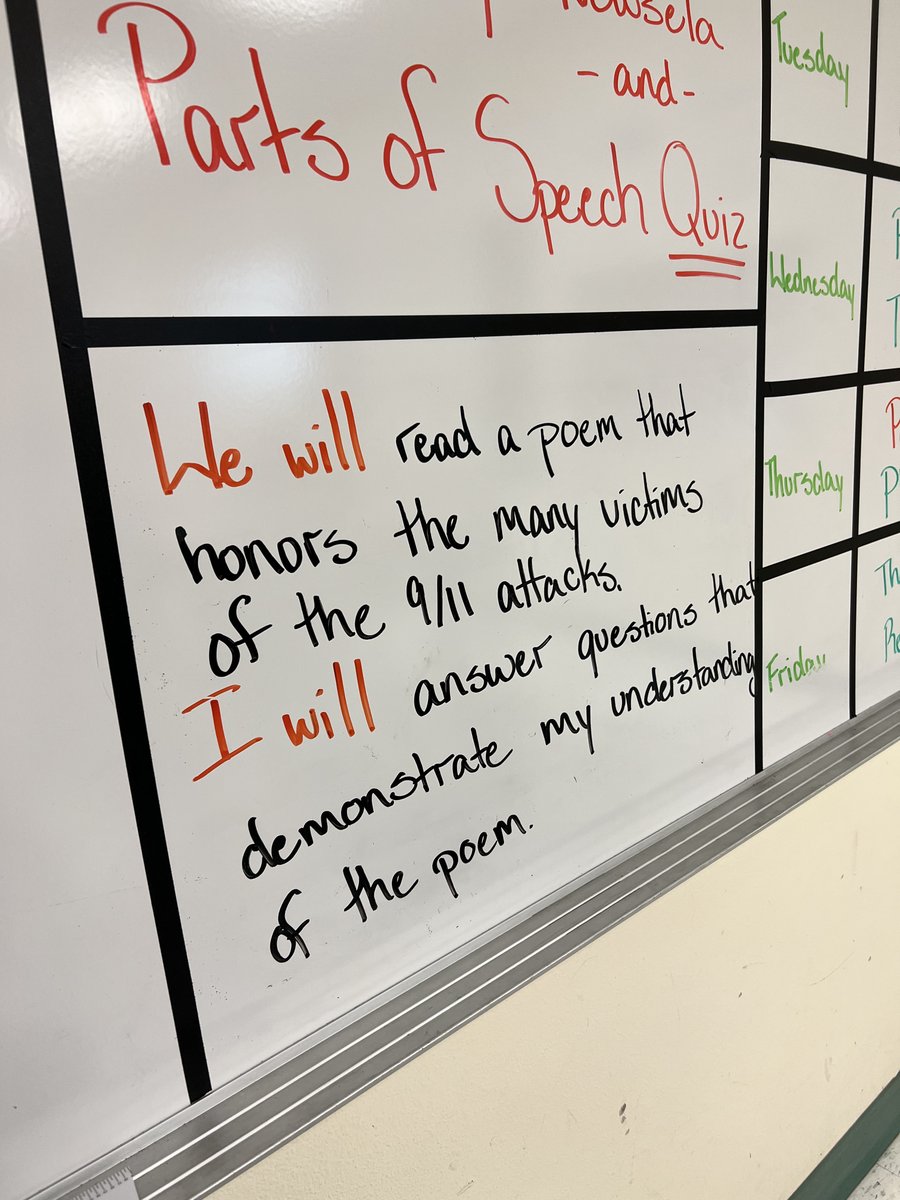 Newsela
-and-
Parts of Speech Quiz
We will read a poem that
honors the many victims
of the 9/11 attacks.
I will answer questions that
demonstrate my understanding
of the poem.
Tuesday
Wednesday
Thursday
Friday